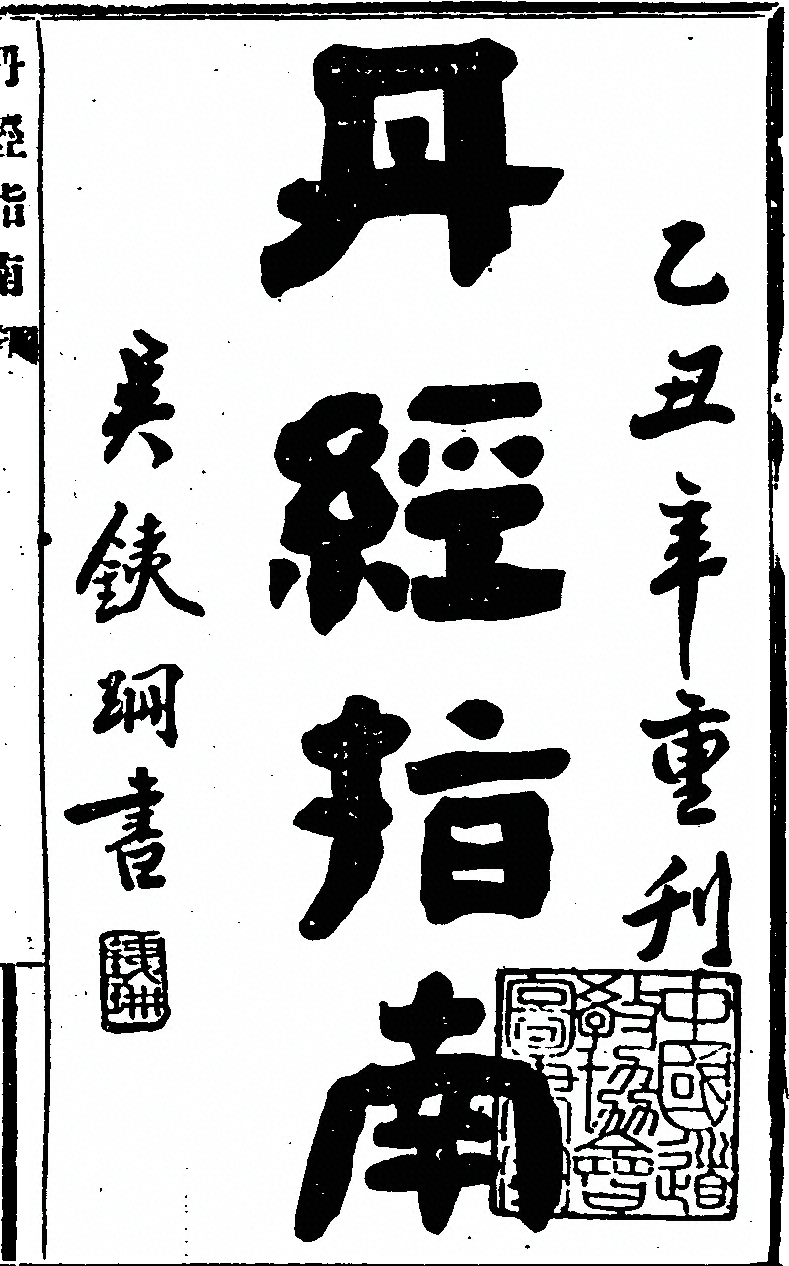 乙丑年重刊
丹經指南
吳銕珊書
銕珊
中國道
教協會
丹經指南